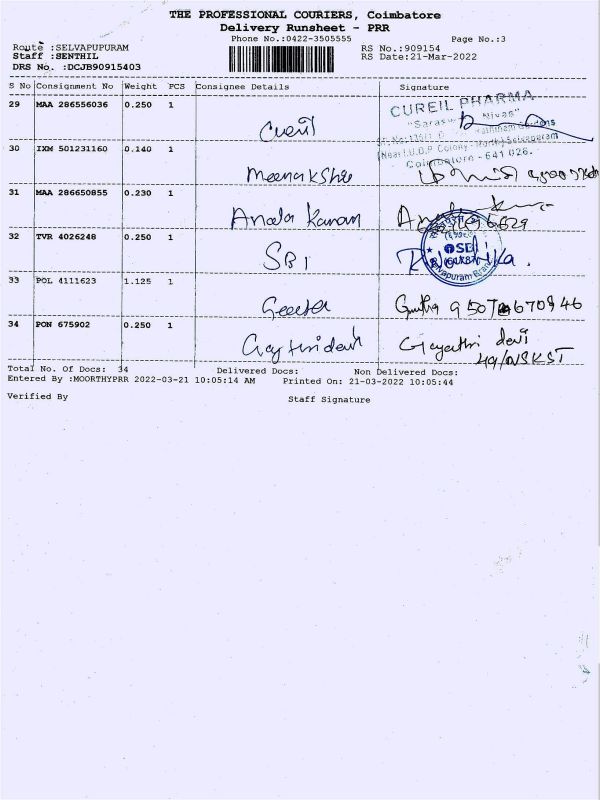 THE PROFESSIONAL COURIERS, Coimbatore
Delivery Runsheet - PRR
Phone No.:0422-3505555 Page No.:3
Route :SELVAPUPURAM RS No.:909154
Staff :SENTHIL RS Date:21-Mar-2022
DRS No. :DCJB90915403
S No Consignment No Weight PCS Consignee Details Signature
29 MAA 286556036 0.250 1
CUREIL PHARMA
"Saraswathi Nivas"
(Near) H.U.D.P Colony (North) Selvapuram
Coimbatore - 641 026.
30 IXM 501231160 0.140 1 Meenakshi
31 MAA 286650855 0.230 1
32 TVR 4026248 0.250 1 SBI
SBI
Selvapuram Branch
33 POL 4111623 1.125 1 Geetha
34 PON 675902 0.250 1 Gaythridevi Gayathri devi
Total No. Of Docs: 34 Delivered Docs: Non Delivered Docs:
Entered By :MOORTHYPRR 2022-03-21 10:05:14 AM Printed On: 21-03-2022 10:05:44
Verified By Staff Signature